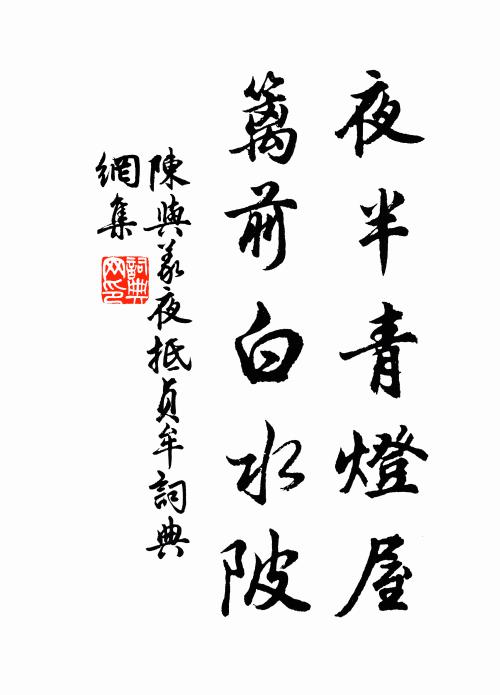 夜半青燈屋
籬前白水陂
陳與義夜抵貞牟詞典
網集
詞典
网印